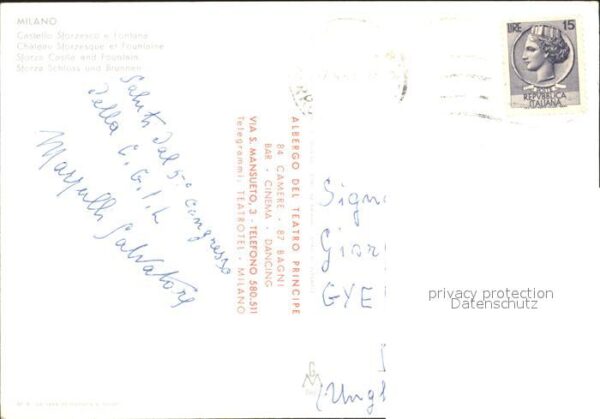 MILANO
Castello Sforzesco e Fontana
Château Sforzesque et Fountaine
Sforza Castle and Fountain
Sforza Schloss und Brunnen
Saluti dal 5° congresso
della C.G.I.L
Salvatore
ALBERGO DEL TEATRO PRINCIPE
84 CAMERE - 87 BAGNI
BAR - CINEMA - DANCING
VIA S. MANSUETO, 3 - TELEFONO 580.511
Telegrammi: TEATROTEL - MILANO
LIRE 15
REPVBBLICA
ITALIANA
Sign
Gior
GYE
(Ungh
privacy protection
Datenschutz